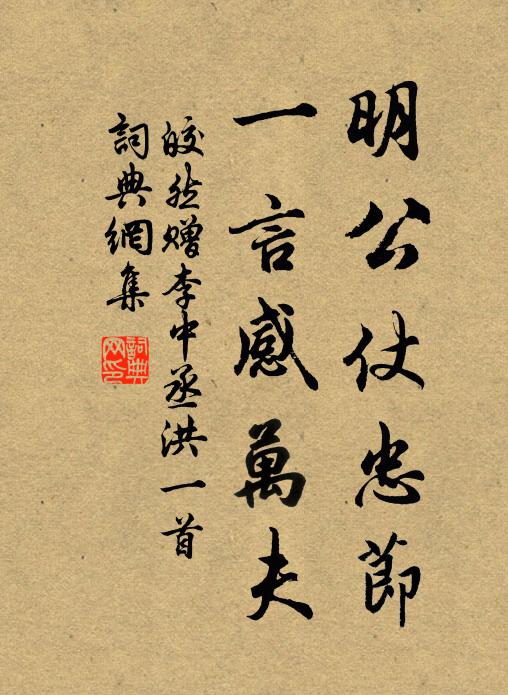 明公仗忠節
一言感萬夫
皎然贈李中丞洪一首
詞典網集
詞典网印